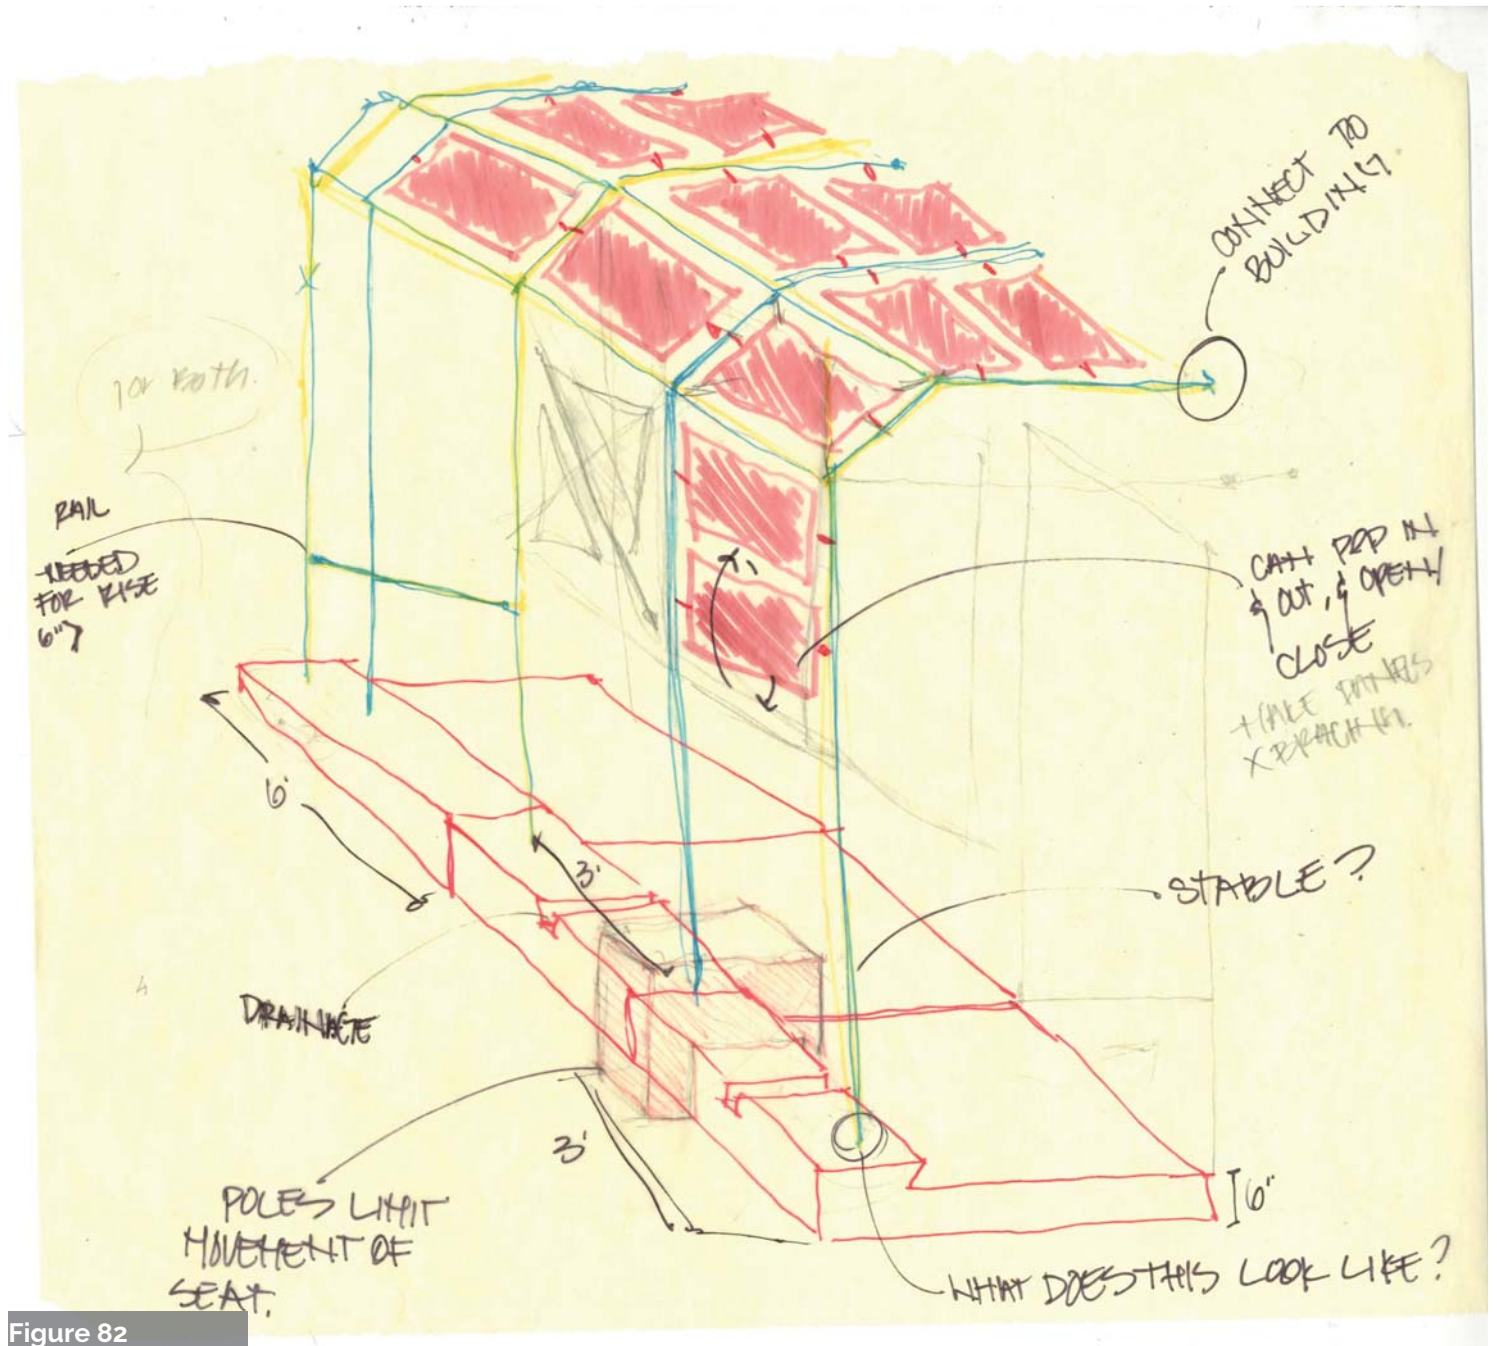 CONNECT TO
BUILDING
1 OR BOTH.
RAIL
NEEDED
FOR RISE
6"7
CAN POP IN
& OUT, & OPEN/
CLOSE
PANELS
X BRACING.
6'
3'
STABLE?
DRAINAGE
3'
POLES LIMIT
MOVEMENT OF
SEAT.
6"
WHAT DOES THIS LOOK LIKE?
Figure 82